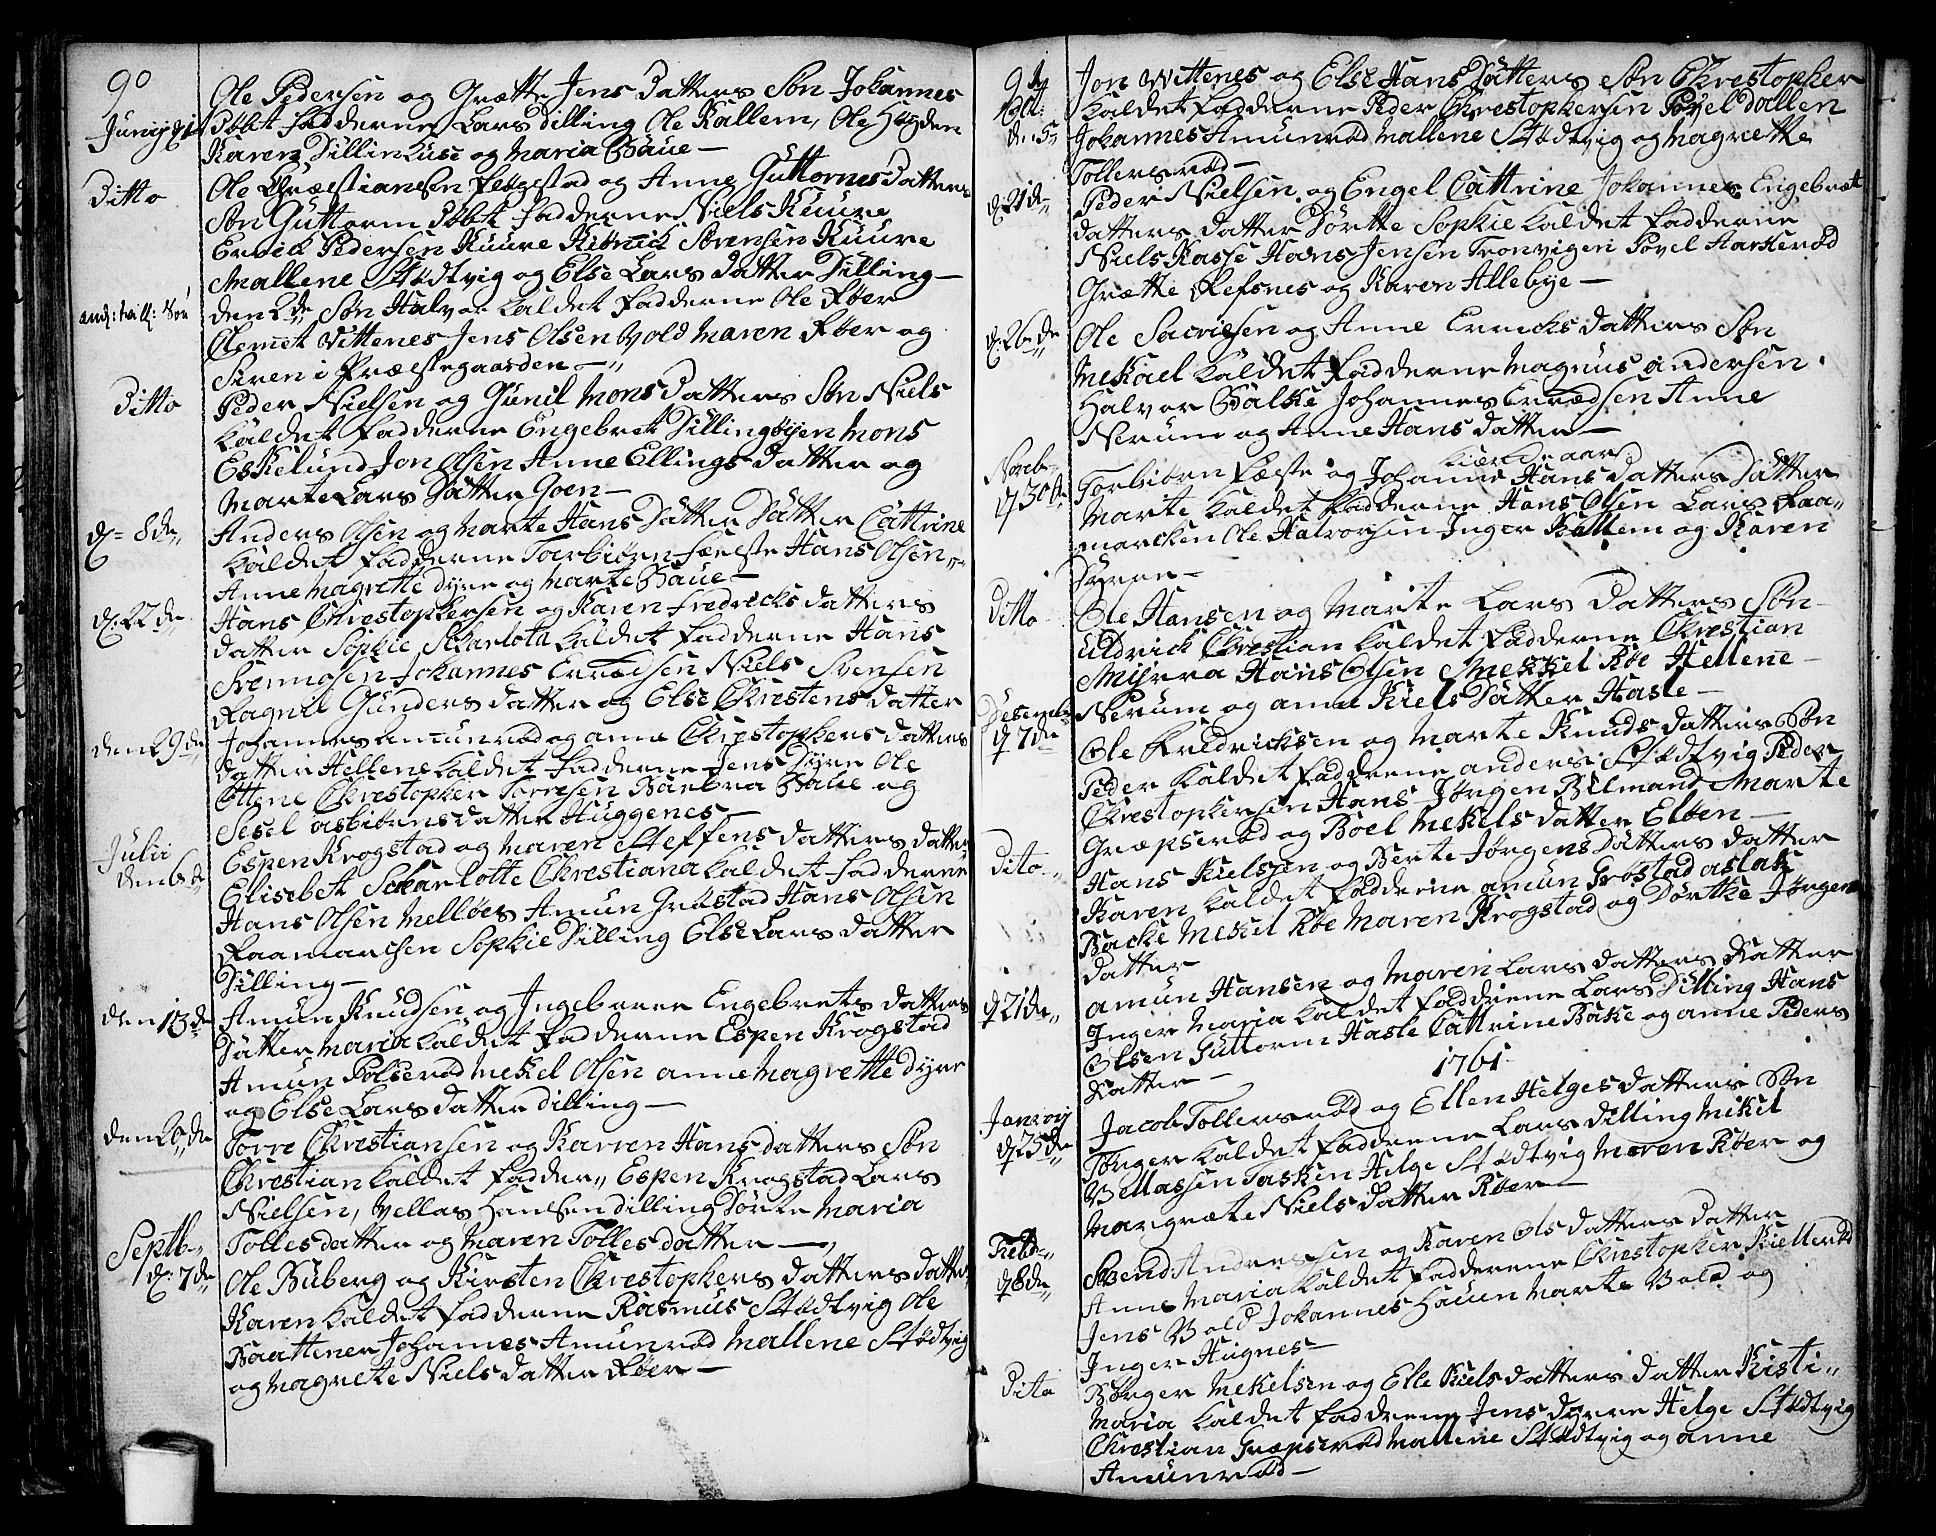 90
Junij
Ole Pedersen og Grætte Jens Datters Søn Johannes
Døbt fadderne Lars Dilling Ole Kallem, Ole Høyden
Karen Dillinhuse og Maria Baue —
Ditto
Ole Chræstiansen feøgestad og Anne Guttormes Datters
Søn Guttorm Døbt fadderne Niels Kuure
Errick Pedersen Kuure Kiønnick Sørensen Kuure
Mallene Stødtvig og Else Lars Datter Dilling —
den 2de Søn Halvor kaldet fadderne Ole Røer
Clemet Vittenes Jens Olsen Vold Maren Røer og
Siren i Præstegaarden —
Ditto
Peder Nielsen og Gunil Mons Datters Søn Niels
kaldet fadderne Engebret Dillingøyen Mons
Eskelund Jon Olsen Anne Ellings Datter og
Marte Lars Datter Goen —
d= 8de
Anders Olsen og Marte Hans Datter Datter Cattrine
kaldet fadderne Torbiørn Feeste Hans Olsen
Anne Magrette Dyre og Marte Baue —
d: 22de
Hans Chrestophersen og Karen Fredricks Datters
Datter Sophie Skarlota kaldet fadderne Hans
Svennøsen Johannes Erredsen Niels Svensen
Ragnil Gunders Datter og Else Chrestens Datter
den 29de
Johannes Amunrød og Anne Chrestophers Datters
Datter Hellene kaldet fadderne Jens Dyre Ole
Ottene Chrestopher Torresen Barbra Baue og
Sesel Asbiørns Datter Huggenes —
Julii
den 6te
Espen Krogstad og Maren Steffens Datters Datter
Elisebet Scharlotte Chrestiana kaldet fadderne
Hans Olsen Melløes Amun Grøstad Hans Olsen
Raamarchen Sophie Dilling Else Lars Datter
Dilling —
den 13de
Amun Knudsen og Ingeborre Engebrets Datters
Datter Maria kaldet fadderne Espen Krogstad
Amun Polserød Mekel Olsen Anne Magrette Dyre
og Else Lars Datter Dilling —
den 26de
Torre Chrestiansen og Karren Hans Datters Søn
Chrestian kaldet fadder Espen Krogstad Lars
Nielsen, Vellas Hansen Dilling Dorte Maria
Tolles Datter og Maren Tolles Datter —
Septb
d: 7de
Ole Buberg og Kirsten Chrestophers Datters Datter
Karen kaldet fadderne Rasmus Stødtvig Ole
Baattener Johannes Amunrød Mallene Stødtvig
og Magrete Niels Datter Røer —
91
den 5
Jon Wittenes og Else Hans Datters Søn Chrestopher
kaldet fadderne Peder Chrestophersen Povel Dallen
Johannes Amunrød Mallene Stødtvig og Magrette
Tollersrød —
d: 21de
Peder Nielsen og Engel Cattrine Johannes Engebret
Datters Datter Dortte Sophie kaldet fadderne
Niels Kasse Hans Jensen Tronvigen Povel Karkerød
Grætte Refsnes og Karen Allebye —
d: 26de
Ole Sacriesen og Anne Erricks Datters Søn
Mekael kaldet fadderne Magnus Andersen
Halvor Balke Johannes Erredsen Anne
Nerum og Anne Hans Datter —
Novb
d 30te
Torbiørn Feeste og Johanne Hans Datters Datter
Marte kaldet fadderne Hans Olsen Lars Raa-
marchen Ole Halvorsen Inger Kallem og Karen
Dyrre —
Ditto
Ole Hansen og Marte Lars Datters Søn
Uldrick Chrestian kaldet fadderne Chrestian
Myrra Hans Olsen Mekkel Røe Hellene
Nerum og Anne Kiels Datter Hasle —
Desember
d 7de
Ole Fredricksen og Marte Knuds Datters Søn
Peder kaldet fadderne Anders Stødtvig Peder
Chrestophersen Hans Jørgen Bilmand Marte
Græpserød og Boel Mekels Datter Eløen —
Dito
Hans Kielssen og Berte Jørgens Datters Datter
Karen kaldet fadderne Amun Grøstad Aslak
Backe Mekel Røe Maren Krogstad og Dortke Jørgens
Datter
d 21de
Amun Hansen og Maren Lars Datters Datter
Inger Maria kaldet fadderne Lars Dilling Hans
Olsen Guttorm Hasle Cattrine Bake og Anne Peders
Datter —
1761
Janvarij
d 25de
Jacob Tollersrød og Ellen Helges Datters Søn
Tørger kaldet fadderne Lars Dilling Mikel
Vellassen Tasken Helge Stødtvig Maren Røer og
Margræte Niels Datter Røer —
Febr
d 8de
Svend Andersen og Karen Ols Datters Datter
Anne Maria kaldet fadderne Chrestopher Kiellerød
Jens Vold Johannes Hauen Marte Vold og
Inger Hugnes —
Dito
Børger Mekelsen og Elle Kiels Datters Datter Kisti-
Maria kaldet fadderne Jens Dyrre Helge Stødtvig
Chrestian Græpserød Mallene Stødtvig og Anne
Amunrød —